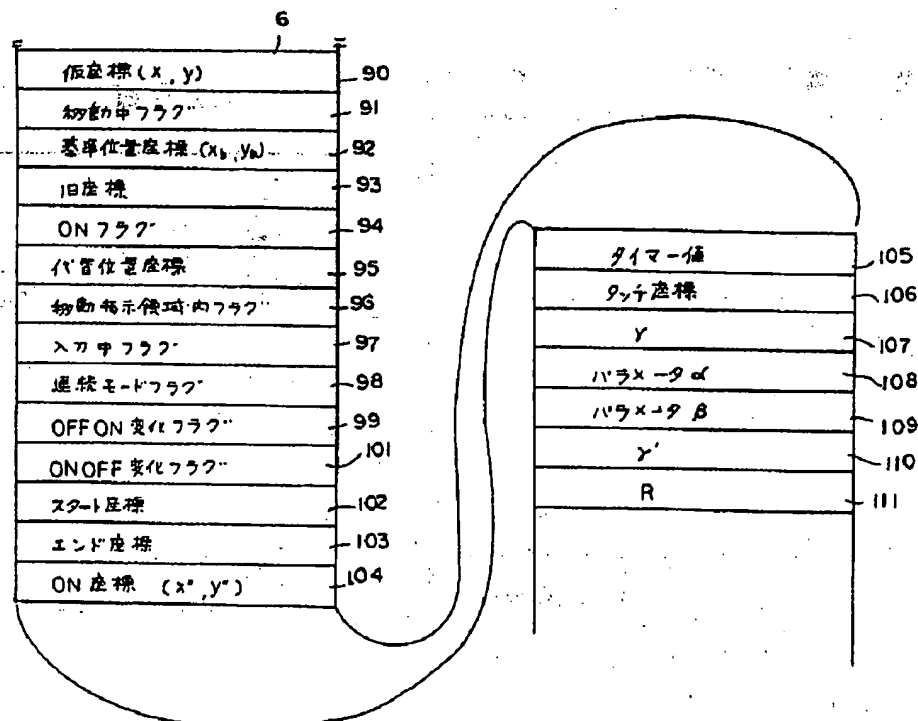 6
仮座標 (x, y) 90
移動中フラグ 91
基準位置座標 (xb, yb) 92
旧座標 93
ONフラグ 94
代替位置座標 95
移動指示領域内フラグ 96
入力中フラグ 97
連続モードフラグ 98
OFF ON 変化フラグ 99
ON OFF 変化フラグ 101
スタート座標 102
エンド座標 103
ON 座標 (x", y") 104
タイマー値 105
タッチ座標 106
γ 107
パラメータ α 108
パラメータ β 109
γ' 110
R 111